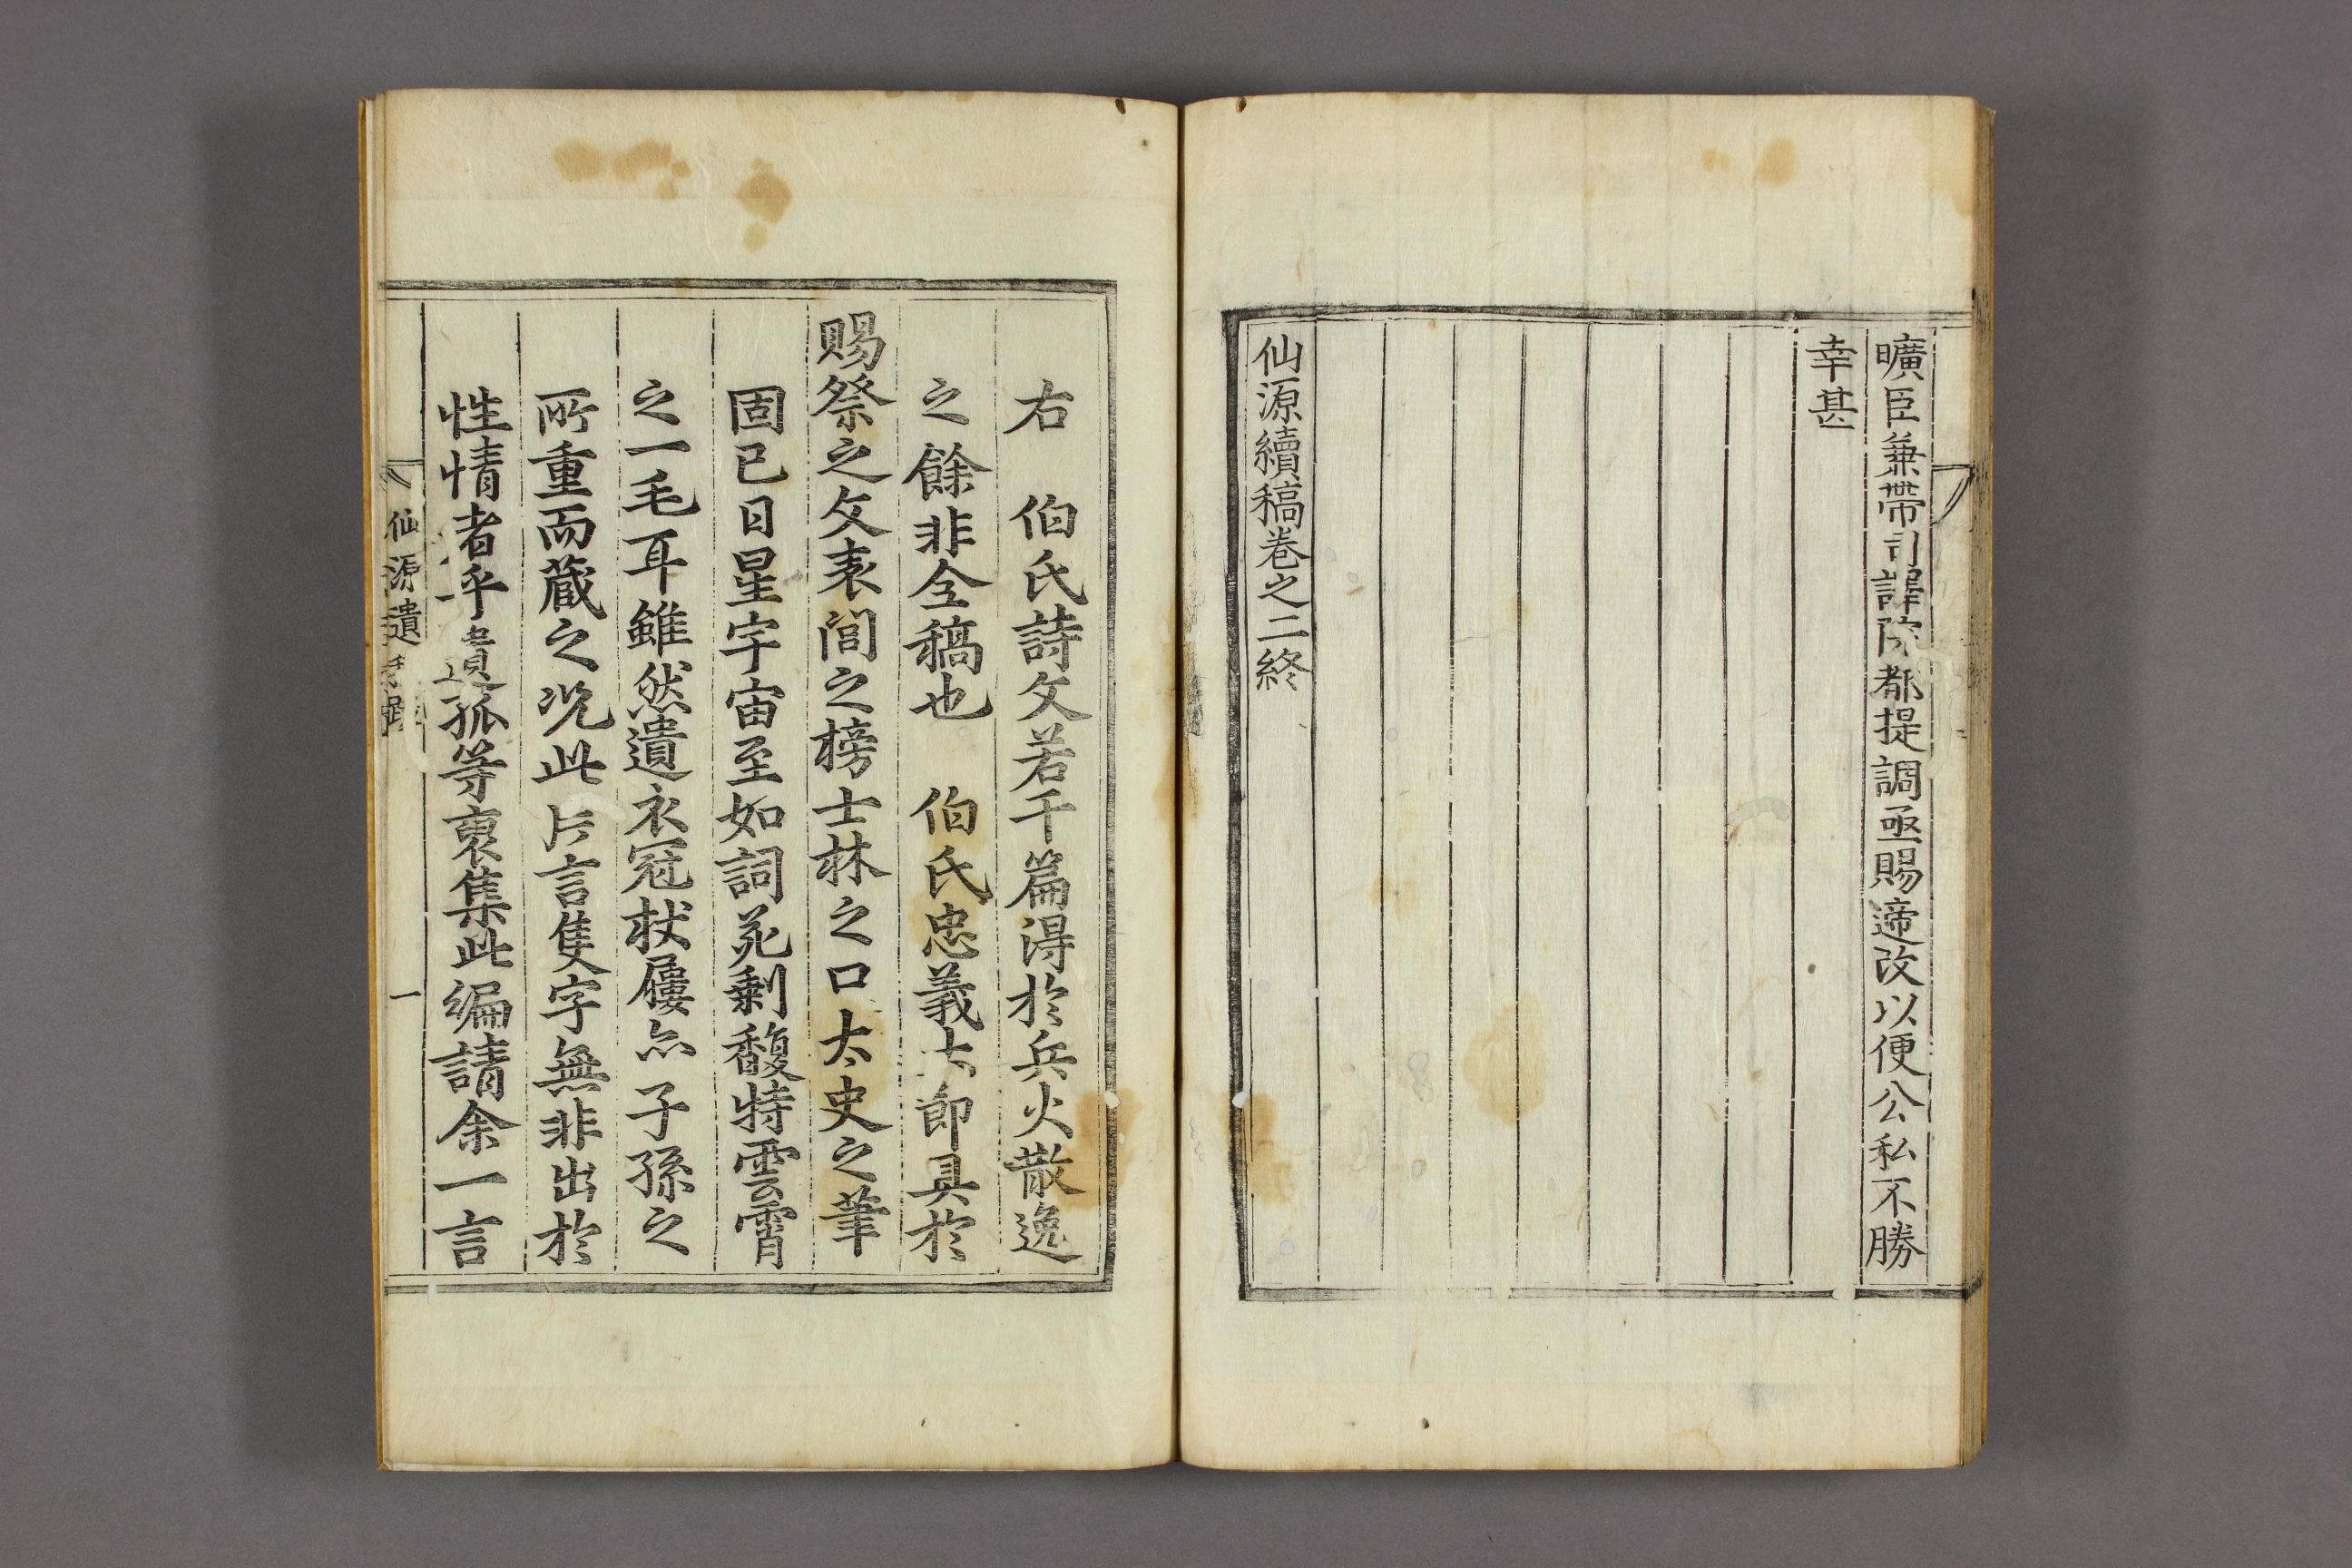 曠臣兼帶司譯院都提調亟賜遞改以便公私不勝
幸甚
仙源續稿卷之二終
右 伯氏詩文若干篇得於兵火散逸
之餘非全稿也 伯氏忠義大節具於
賜祭之文表閭之榜士林之口太史之筆
固已日星宇宙至如詞苑剩馥特雲霄
之一毛耳雖然遺衣冠杖屨亦子孫之
所重而蔵之况此片言隻字無非出於
性情者乎遺孤等裒集此編請余一言
仙源遺
一